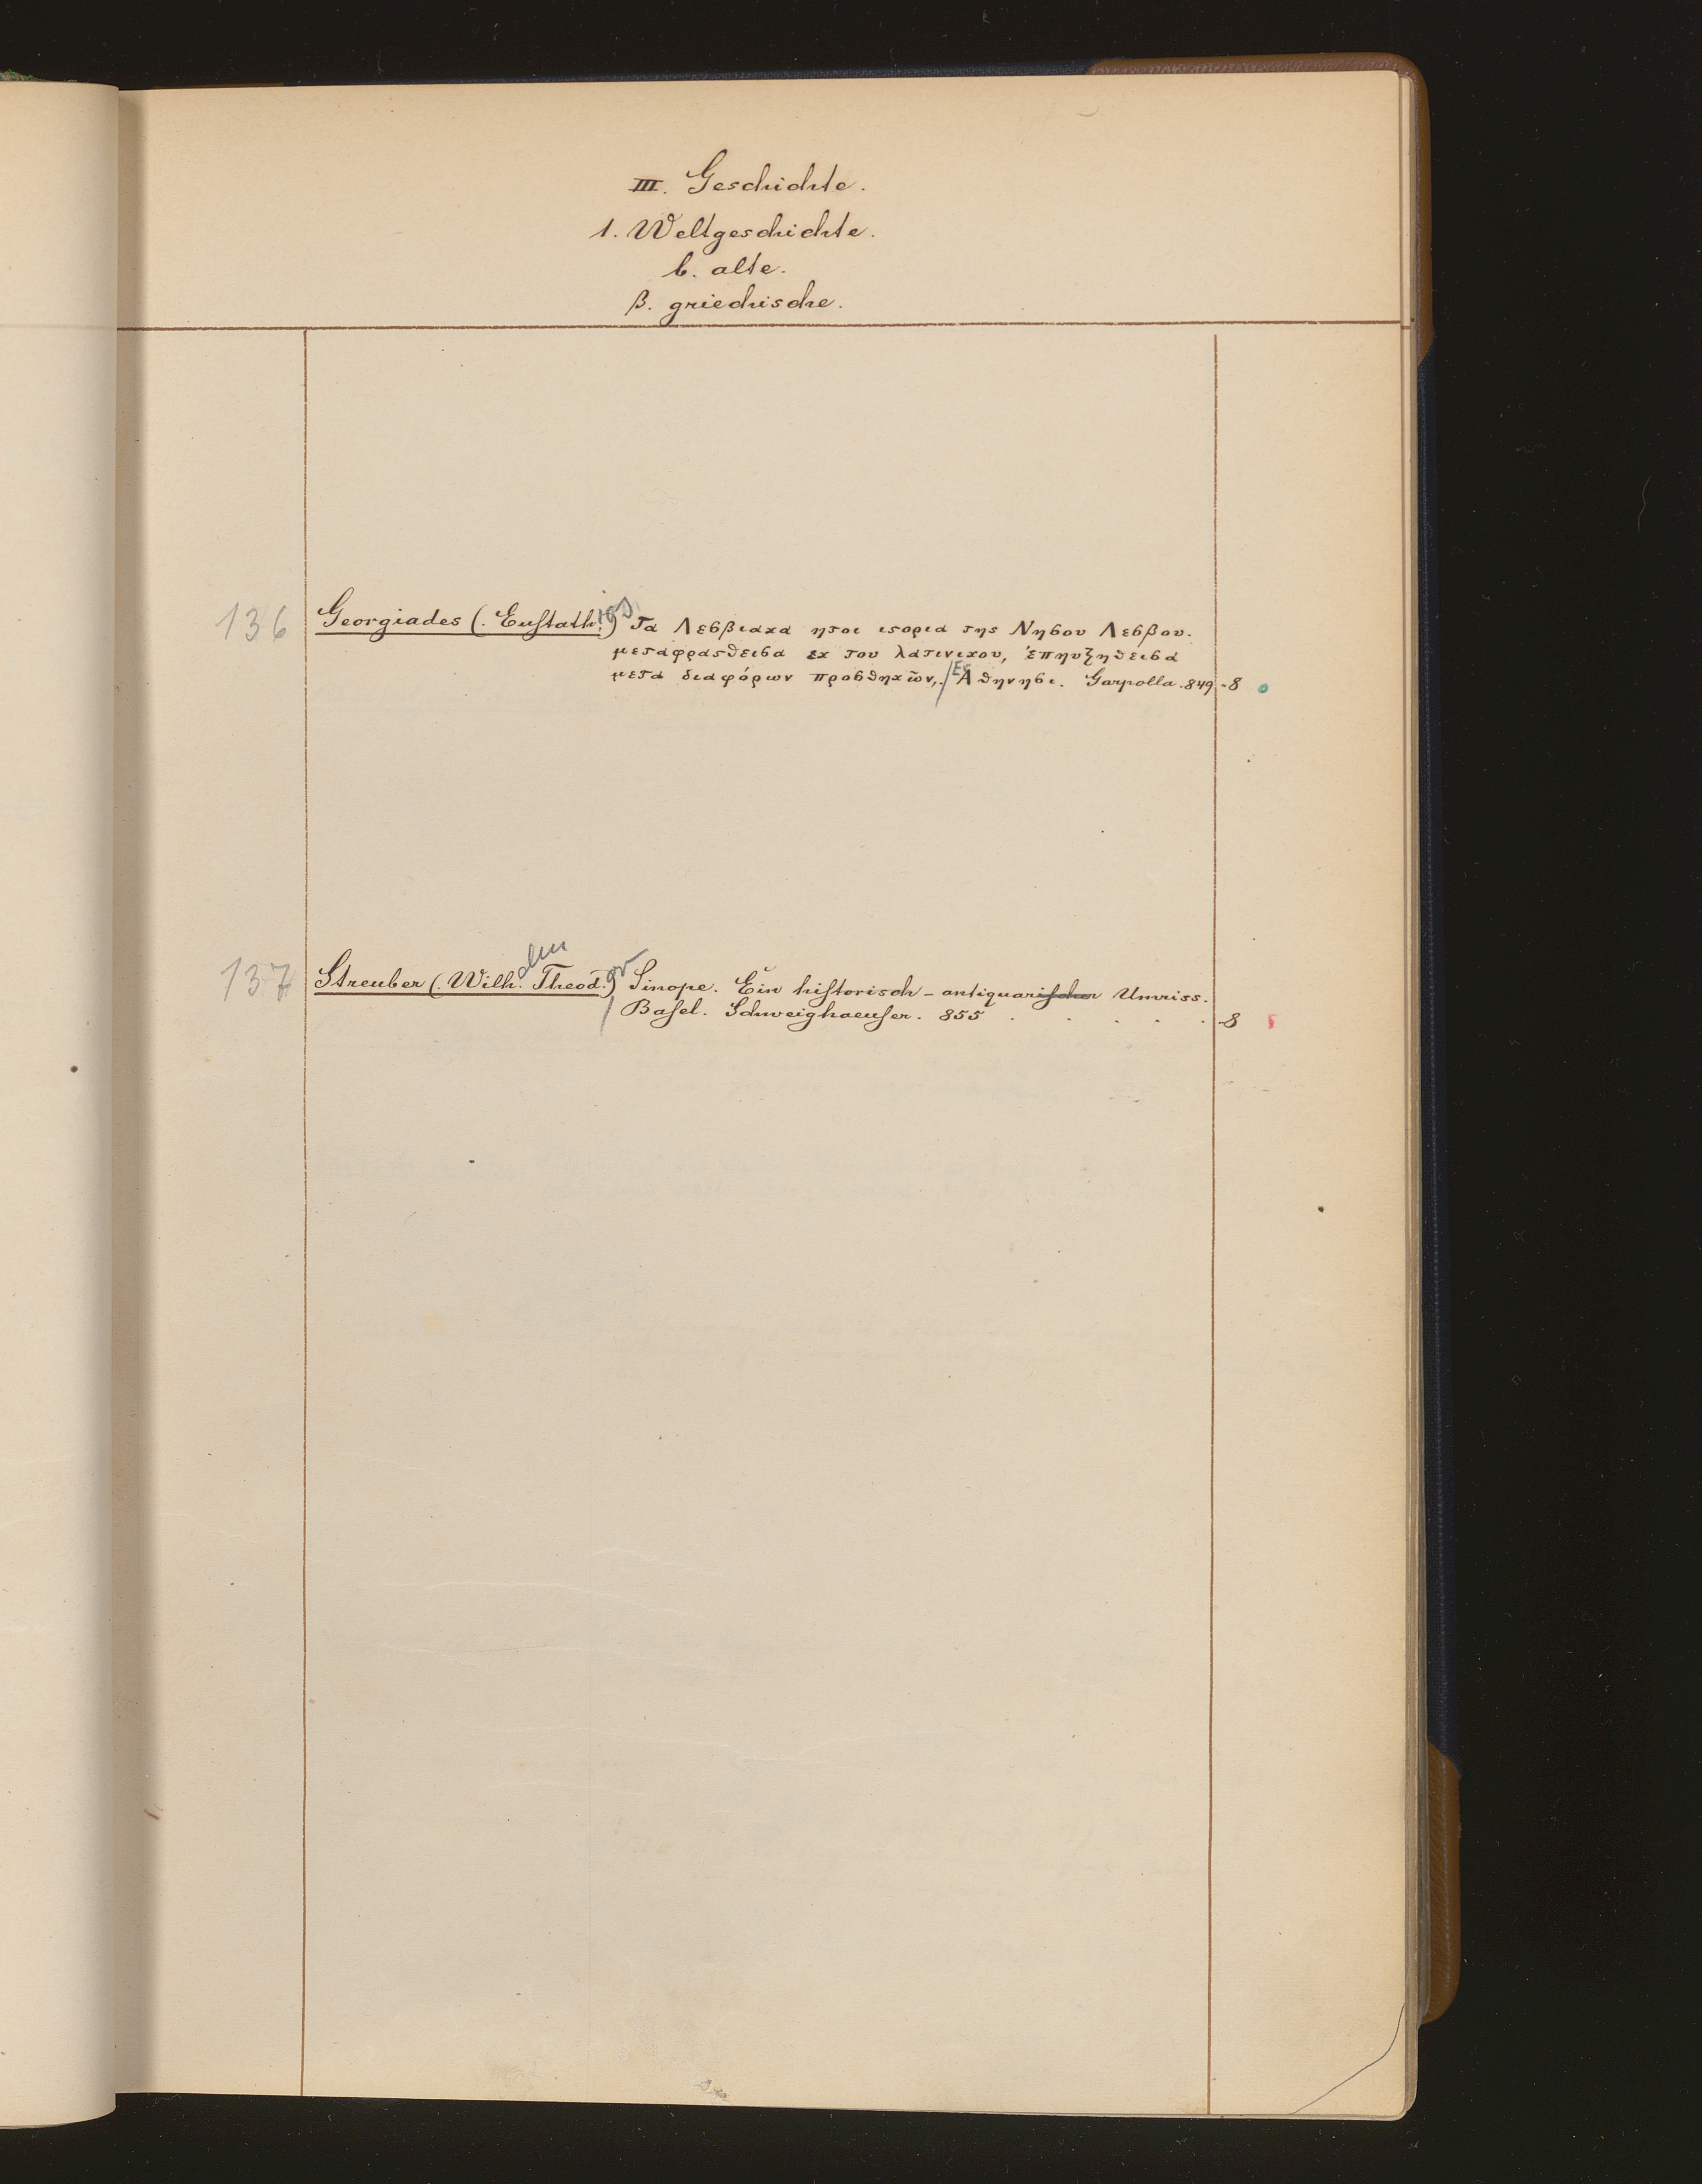 III. Geschichte.
1. Weltgeschichte.
b. alte.
β. griechische.
136 Georgiades (. Eustath.ios) Τα Λεσβιακα ητοι ιςορια της Νησου Λεσβου.
μεταφρασθεισα εκ του λατινικου, ἐπηυξηθεισα
μετα διαφόρων προσθηκῶν,. / Ες Αθηνησι. Garpolla. 849 -8
137 Streuber (. Wilh.elm Theod.or) Sinope. Ein historisch-antiquarischer Umriss.
/ Basel. Schweighaeuser. 855 . . . . . -8